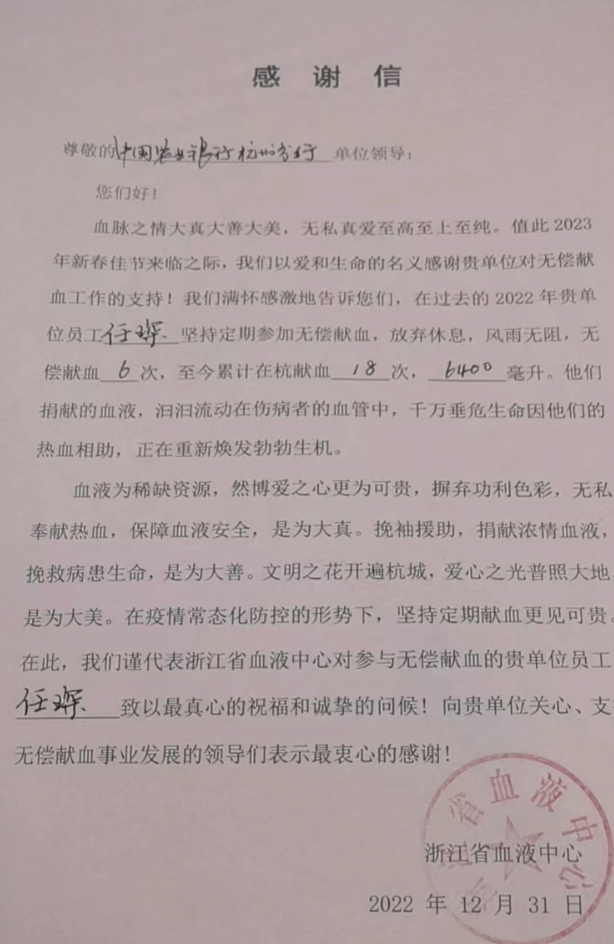 感 谢 信
尊敬的中国农业银行杭州分行 单位领导：
您们好！
血脉之情大真大善大美，无私真爱至高至上至纯。值此 2023
年新春佳节来临之际，我们以爱和生命的名义感谢贵单位对无偿献
血工作的支持！我们满怀感激地告诉您们，在过去的 2022 年贵单
位员工任琛 坚持定期参加无偿献血，放弃休息，风雨无阻，无
偿献血 6 次，至今累计在杭献血 18 次， 6400 毫升。他们
捐献的血液，汩汩流动在伤病者的血管中，千万垂危生命因他们的
热血相助，正在重新焕发勃勃生机。
血液为稀缺资源，然博爱之心更为可贵，摒弃功利色彩，无私
奉献热血，保障血液安全，是为大真。挽袖援助，捐献浓情血液，
挽救病患生命，是为大善。文明之花开遍杭城，爱心之光普照大地
是为大美。在疫情常态化防控的形势下，坚持定期献血更见可贵。
在此，我们谨代表浙江省血液中心对参与无偿献血的贵单位员工
任琛 致以最真心的祝福和诚挚的问候！向贵单位关心、支
无偿献血事业发展的领导们表示最衷心的感谢！
浙江省血液中心
浙江省血液中心
2022 年 12 月 31 日